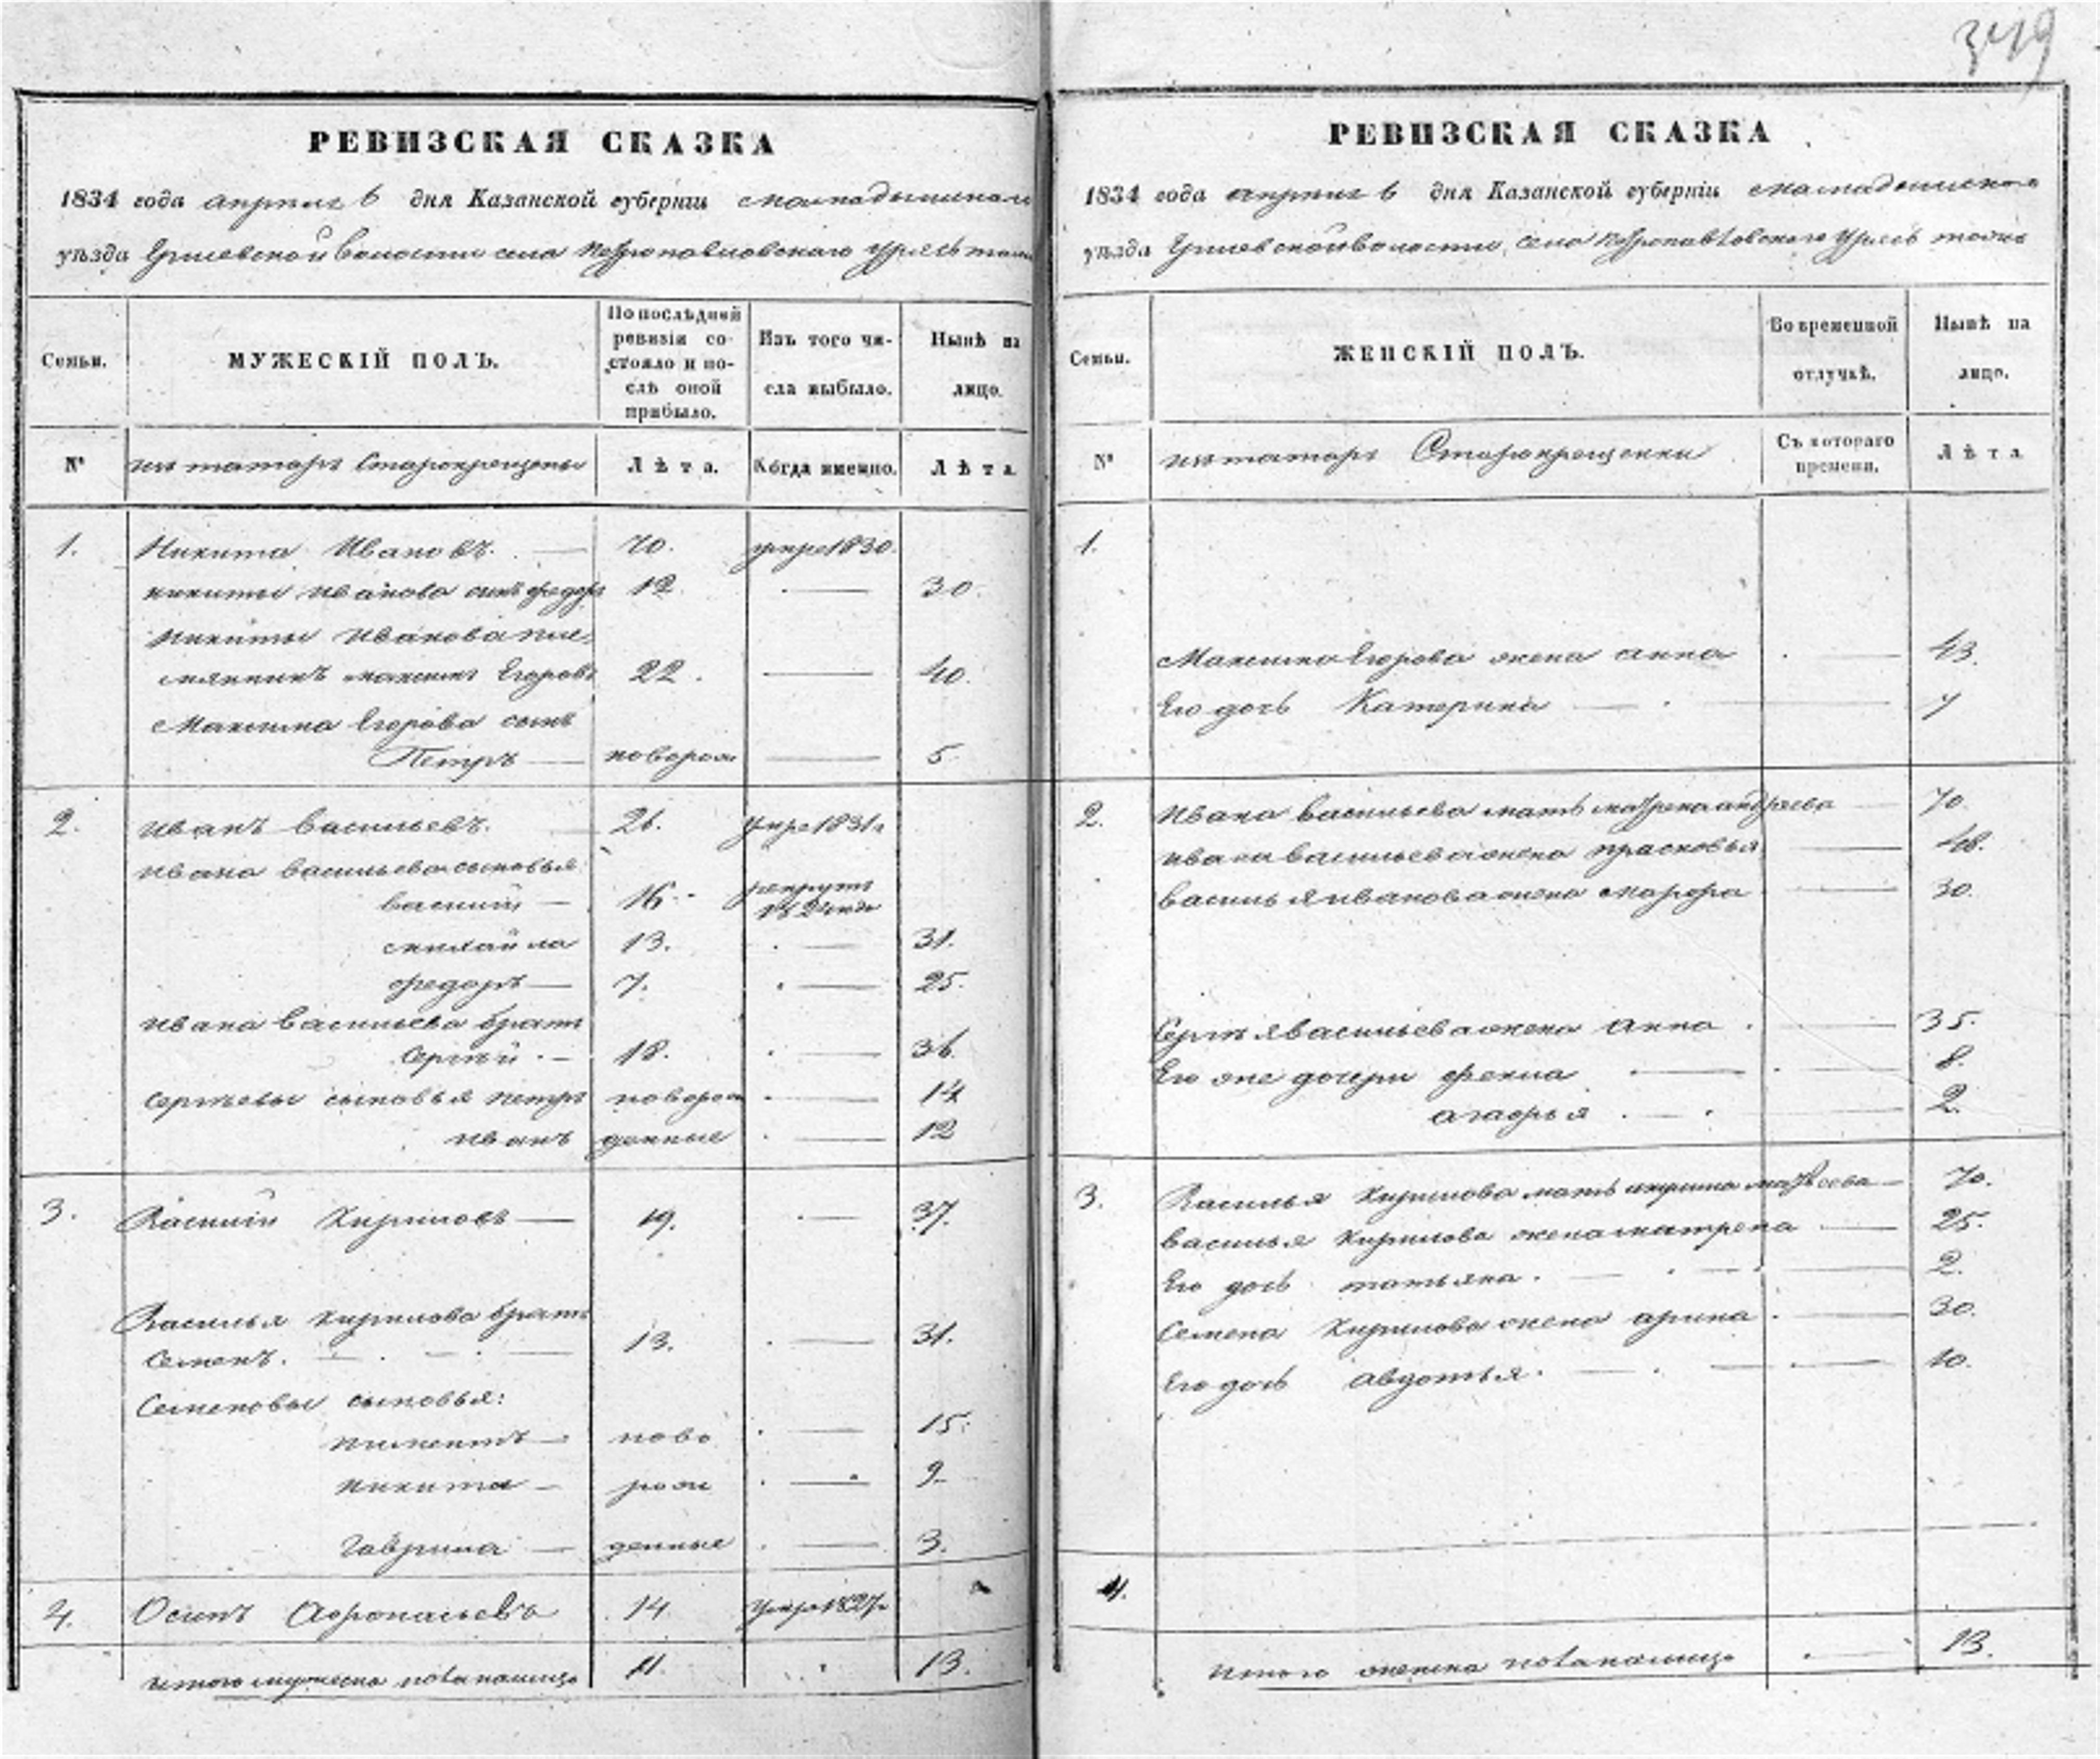 349
РЕВИЗСКАЯ СКАЗКА
1834 года апреля 6 дня Казанской губерніи мамадышскаго
уѣзда волости села Петропавловскаго
Семьи.
МУЖЕСКІЙ ПОЛЪ.
По послѣдней ревизіи состояло и послѣ оной прибыло.
Изъ того числа выбыло.
Нынѣ на лицо.
№
изъ татаръ Старокрещены
Лѣта.
Когда именно.
Лѣта
1. Никита Ивановъ. 70. умре 1830.
никиты иванова сынъ федоръ 12 30.
Никиты Иванова пле-
мянникъ максимъ Егоровъ 22. 40.
Максима Егорова сынъ
Петръ новорож 5
2. Иванъ васильевъ. 26. умре 1831
Ивана васильева сыновья
василій 16 рекрут
михайла 13. 31.
федоръ 7. 25.
Ивана васильева братъ
Сергѣй 18. 36.
сергѣевы сыновья петръ новорож 14
иванъ денные 12
3. Василій Кириловъ 19. 37.
Василья Кирилова братъ
семенъ. 13. 31.
Семеновы сыновья:
ново 15.
никита рож 9
гаврила денные 3.
4. Осипъ 14 умре 1827
итого мужеска пола налицо 11. 13.
РЕВИЗСКАЯ СКАЗКА
1834 года апреля 6 дня Казанской губерніи мамадышскаго
уѣзда волости, села Петропавловскаго
Семьи.
ЖЕНСКІЙ ПОЛЪ.
Во временной отлучкѣ.
Нынѣ на лицо.
№
изъ татаръ Старокрещенки
Съ котораго времени.
Лѣта
1.
Максима Егорова жена анна 43.
Его дочь Катерина 7
2. Ивана васильева мать матрена андреева 70.
ивана васильева жена прасковья 48.
василья иванова жена марфа 30.
Сергѣя васильева жена анна 35.
Его же дочери фекла 8.
агафья 2.
3. Василья Кирилова мать матвеева 70.
василья Кирилова жена матрена 25.
Его дочь татьяна. 2.
Семена Кирилова жена арина 30.
Его дочь авдотья. 10.
4.
итого женска пола налицо 13.